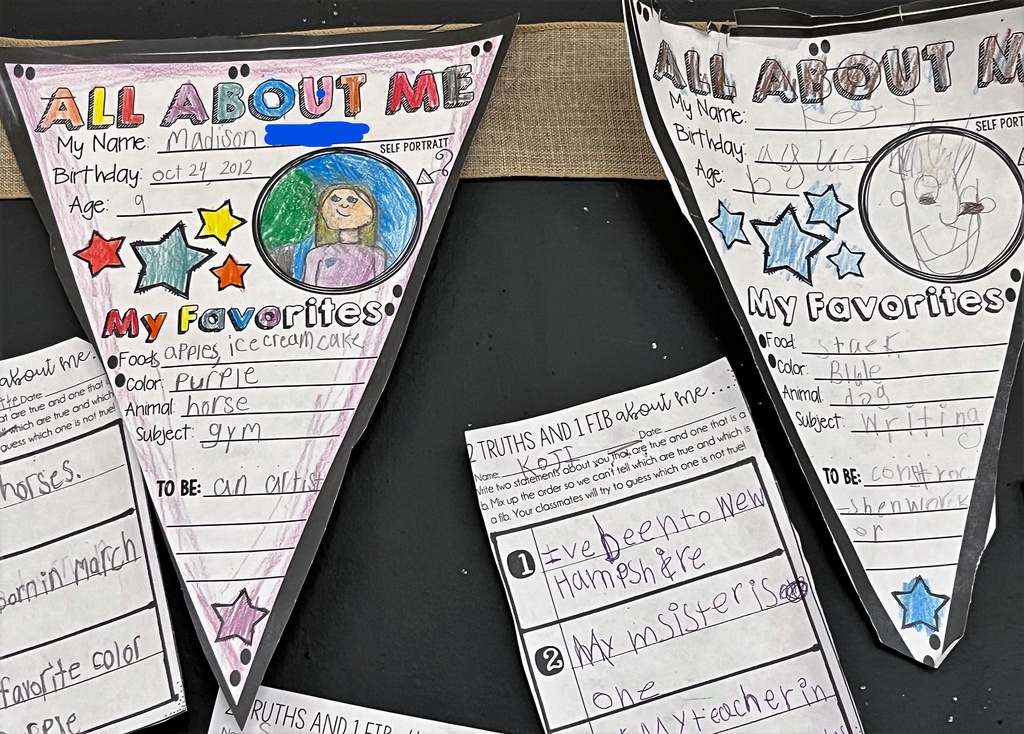 ALL ABOUT ME
My Name: Madison
SELF PORTRAIT
Birthday: oct 24, 2012
Age: 9
My Favorites
Food: apples, ice cream cake
Color: purple
Animal: horse
Subject: gym
TO BE: an artist
ALL ABOUT M
My Name:
SELF PORT
Birthday:
Age:
My Favorites
Food:
Color: Blule
Animal: dog
Subject: writing
TO BE: constroc
shen worck
or
about me.
Date
at are true and one that i
are true and which
guess which one is not true!
horses.
born in march
favorite color
2 TRUTHS AND 1 FIB about me....
Name KOJI Date
Write two statements about you that are true and one that is a
b. Mix up the order so we can't tell which are true and which is
a fib. Your classmates will try to guess which one is not true!
1 I've been to New
Hampshire
2 My msister is
one
My teacher in
RUTHS AND 1 FIB